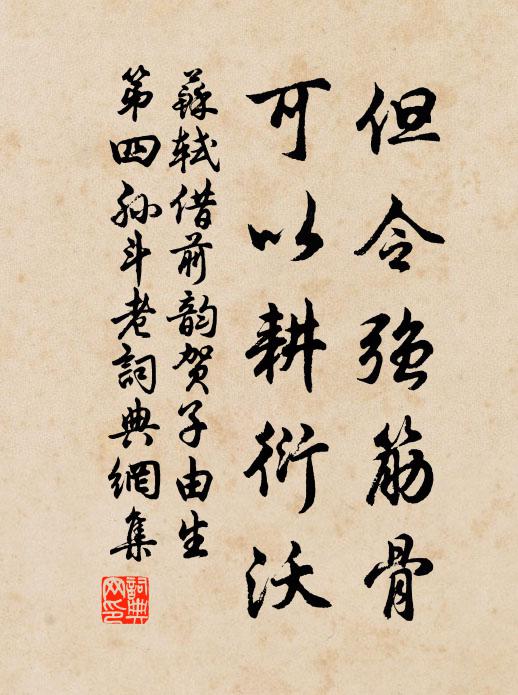 但令强筋骨
可以耕衍沃
蘇軾借前韵贺子由生
第四孙斗老詞典網集
詞典网印